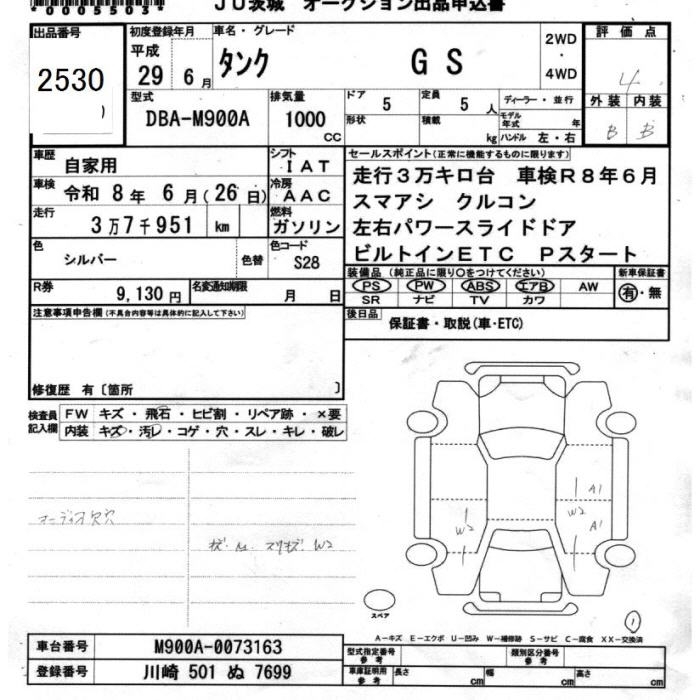 *0005503*
JU茨城 オークション出品申込書
出品番号
2530
初度登録年月
平成
29 6月
車名・グレード
タンク GS
2WD
・
4WD
評価点
4
外装 内装
B B
型式
DBA-M900A
排気量
1000
cc
ドア
5
定員
5人
形状
積載
kg
ディーラー・並行
モデル年式
年
ハンドル 左・右
車歴
自家用
シフト
IAT
車検
令和 8年 6月(26日)
冷房
AAC
走行
3万7千951 km
燃料
ガソリン
色
シルバー
色替
色コード
S28
R券
9,130円
名変通知期限
月 日
セールスポイント(正常に機能するものに限ります)
走行3万キロ台 車検R8年6月
スマアシ クルコン
左右パワースライドドア
ビルトインETC Pスタート
装備品(純正品に限り○をつけてください)
新車保証書
PS PW ABS エアB AW
SR ナビ TV カワ
有・無
後日品
保証書・取説(車・ETC)
注意事項申告欄(不具合内容等は具体的に記入して下さい)
修復歴 有〔箇所 〕
検査員
記入欄
FW キズ・飛石・ヒビ割・リペア跡・×要
内装 キズ・汚レ・コゲ・穴・スレ・キレ・破レ
オーディオ欠穴
キズ・A1. スリキズ・W2
W2
A1
W2
A1
スペア
1
A-キズ E-エクボ U-凹み W-補修跡 S-サビ C-腐食 XX-交換済
車台番号
M900A-0073163
登録番号
川崎 501 ぬ 7699
型式指定番号
参考
類別区分番号
参考
車庫証明用
参考
長さ
cm
幅
cm
高さ
cm